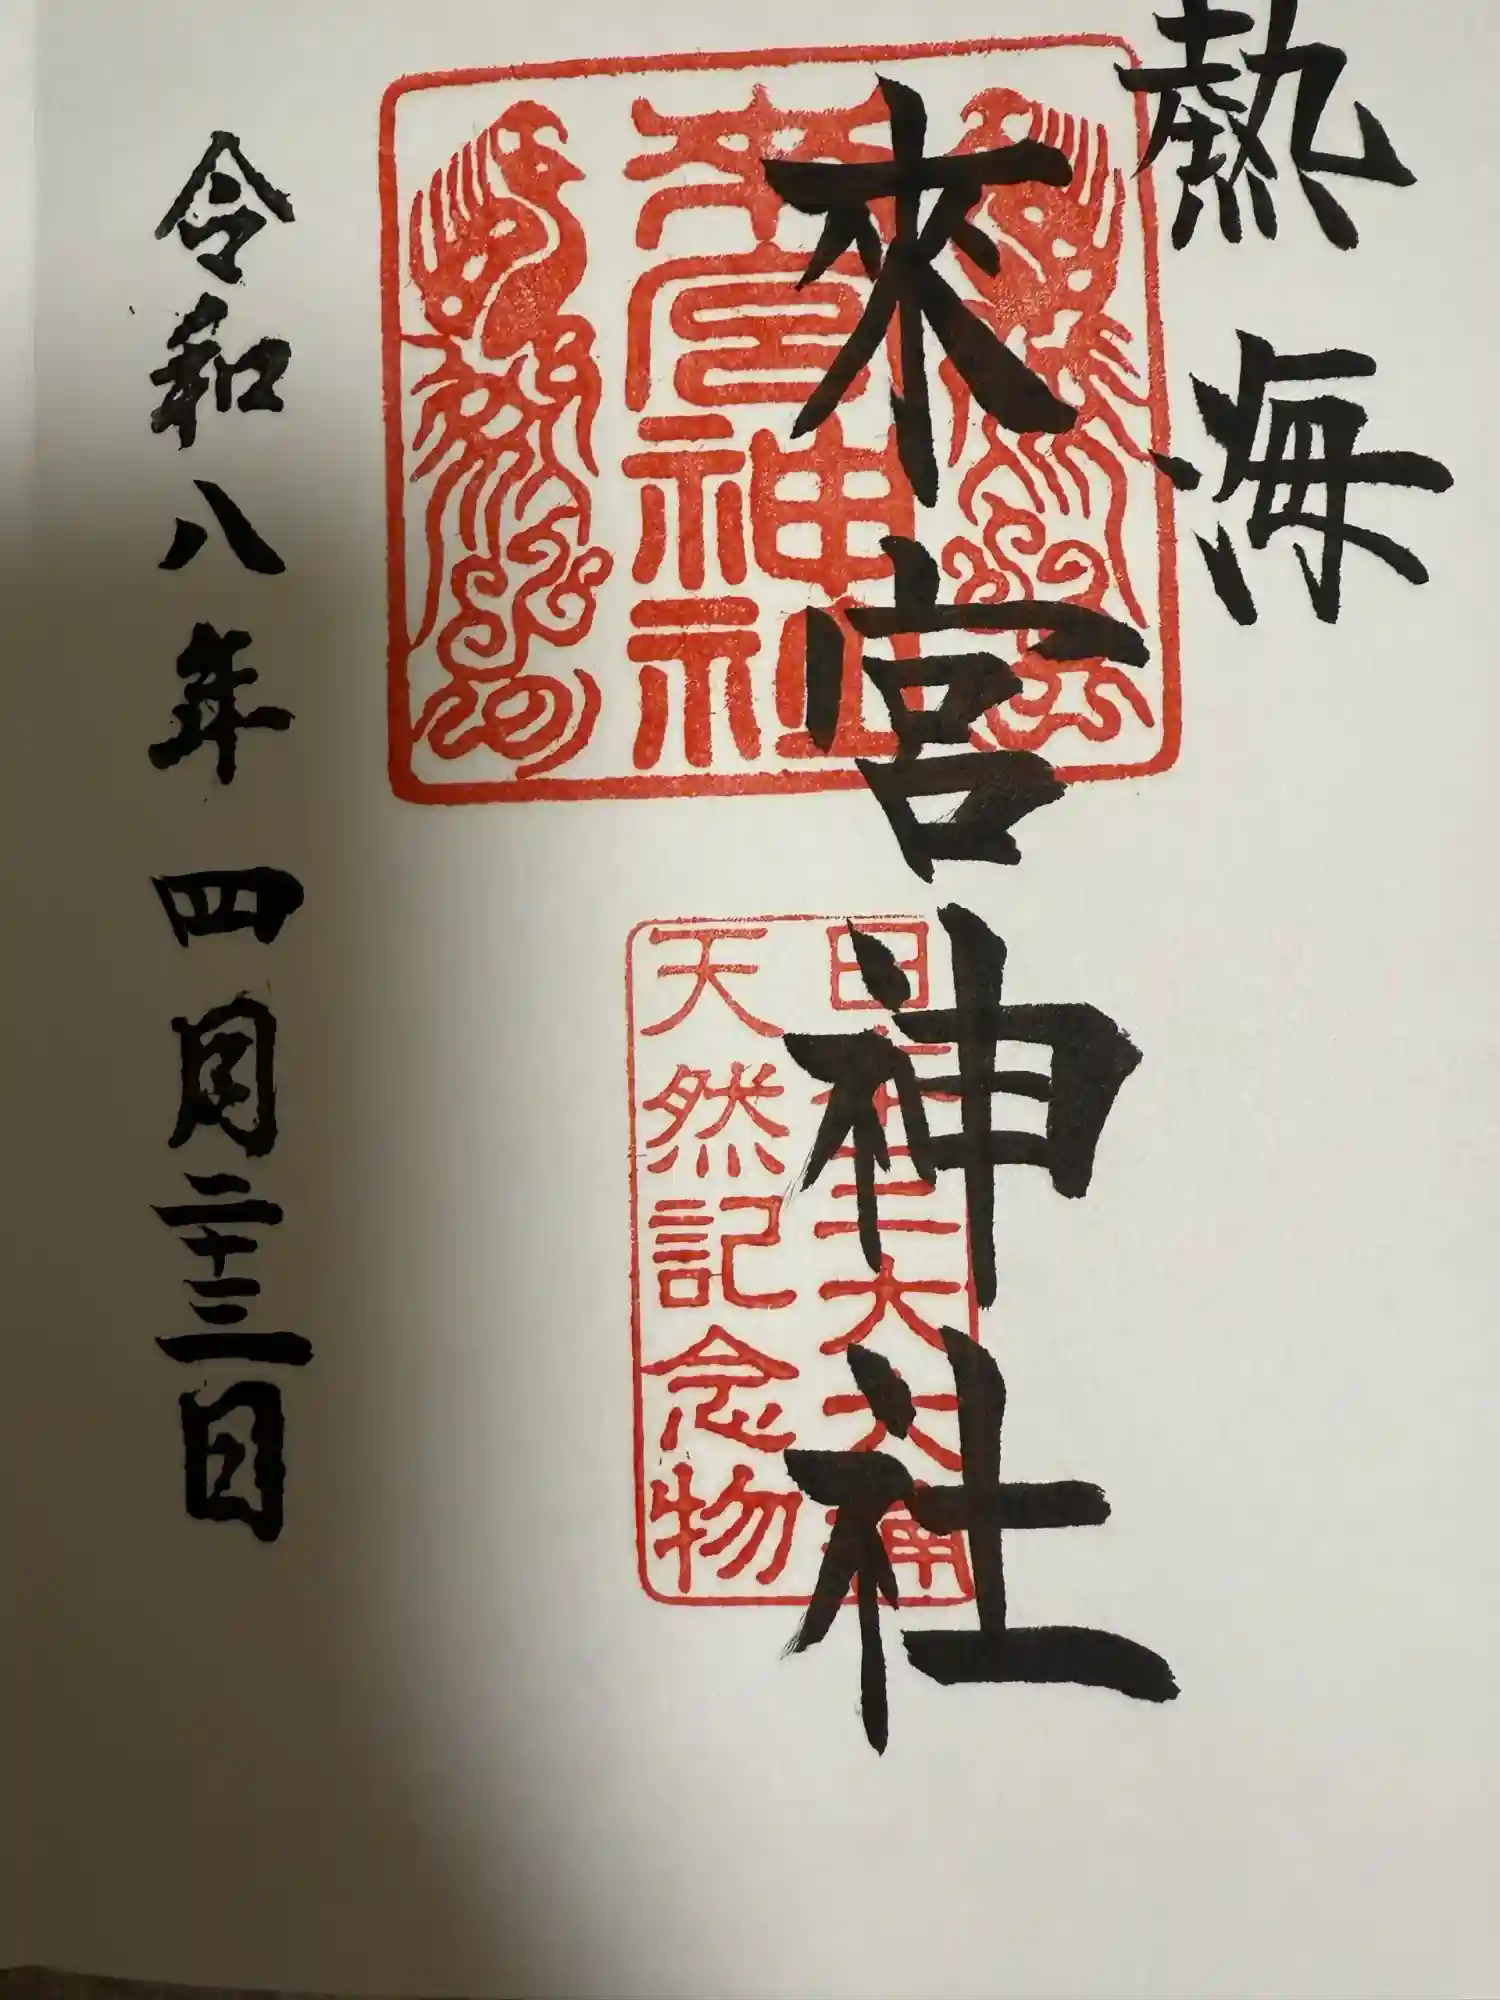 熱海
來宮神社
來宮神社
日本三大大楠
天然記念物
令和八年四月二十三日